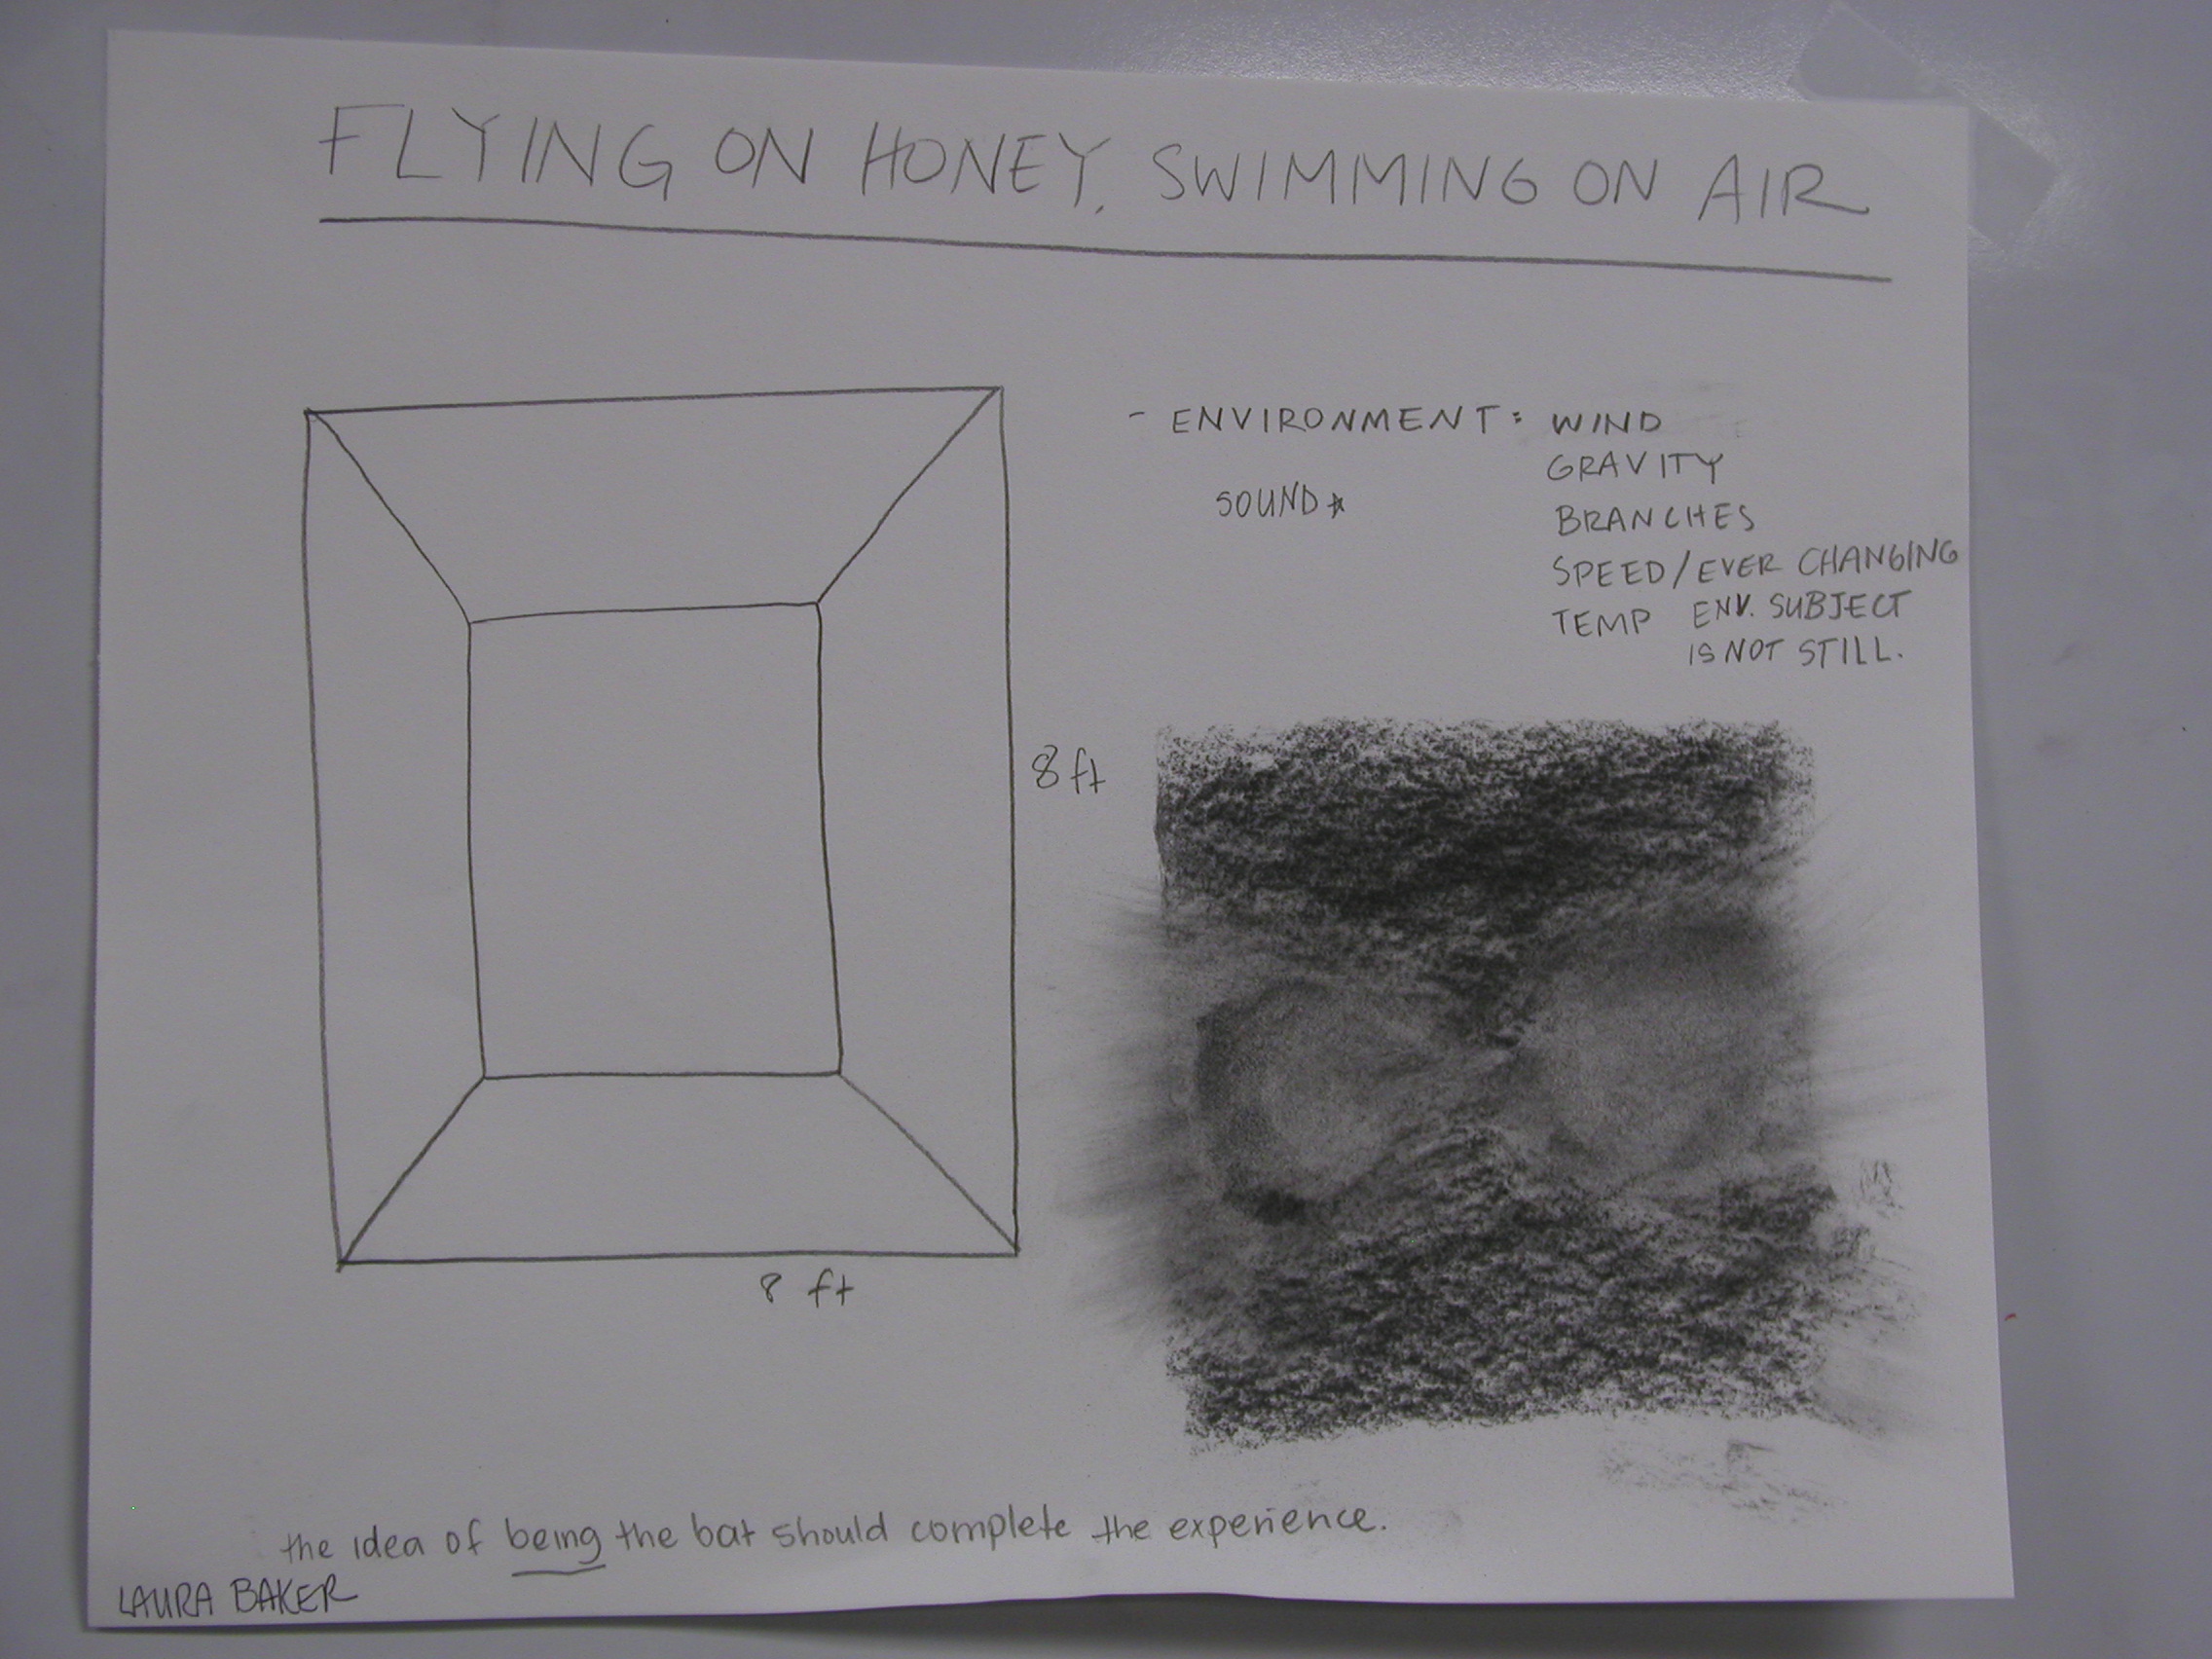 FLYING ON HONEY, SWIMMING ON AIR
- ENVIRONMENT: WIND
GRAVITY
SOUND
BRANCHES
SPEED/EVER CHANGING
TEMP ENV. SUBJECT
IS NOT STILL.
8 ft
8 ft
the idea of being the bat should complete the experience.
LAURA BAKER